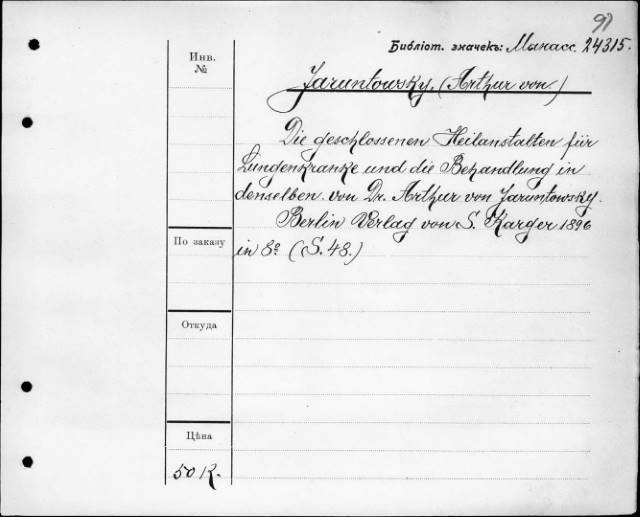 91
Библіот. значекъ: Манасс. 24315.
Инв.
№
Jaruntowsky, (Arthur von.)
Die geschlossenen Heilanstalten für
Lungenkranke und die Behandlung in
denselben. von Dr. Arthur von Jaruntowsky.
Berlin Verlag von S. Karger 1896
По заказу
in 8º (S. 48.)
Откуда
Цѣна
50 K.